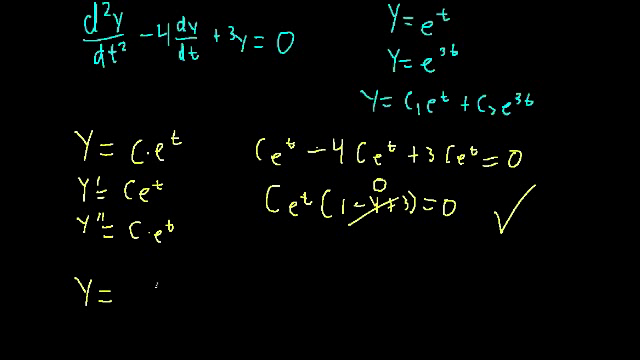 d²y/dt² - 4 dy/dt + 3y = 0
y = e^t
y = e^3t
y = c₁e^t + c₂e^3t
y = c·e^t
y' = ce^t
y'' = c·e^t
ce^t - 4ce^t + 3ce^t = 0
0
ce^t(1-4+3) = 0 ✓
y =